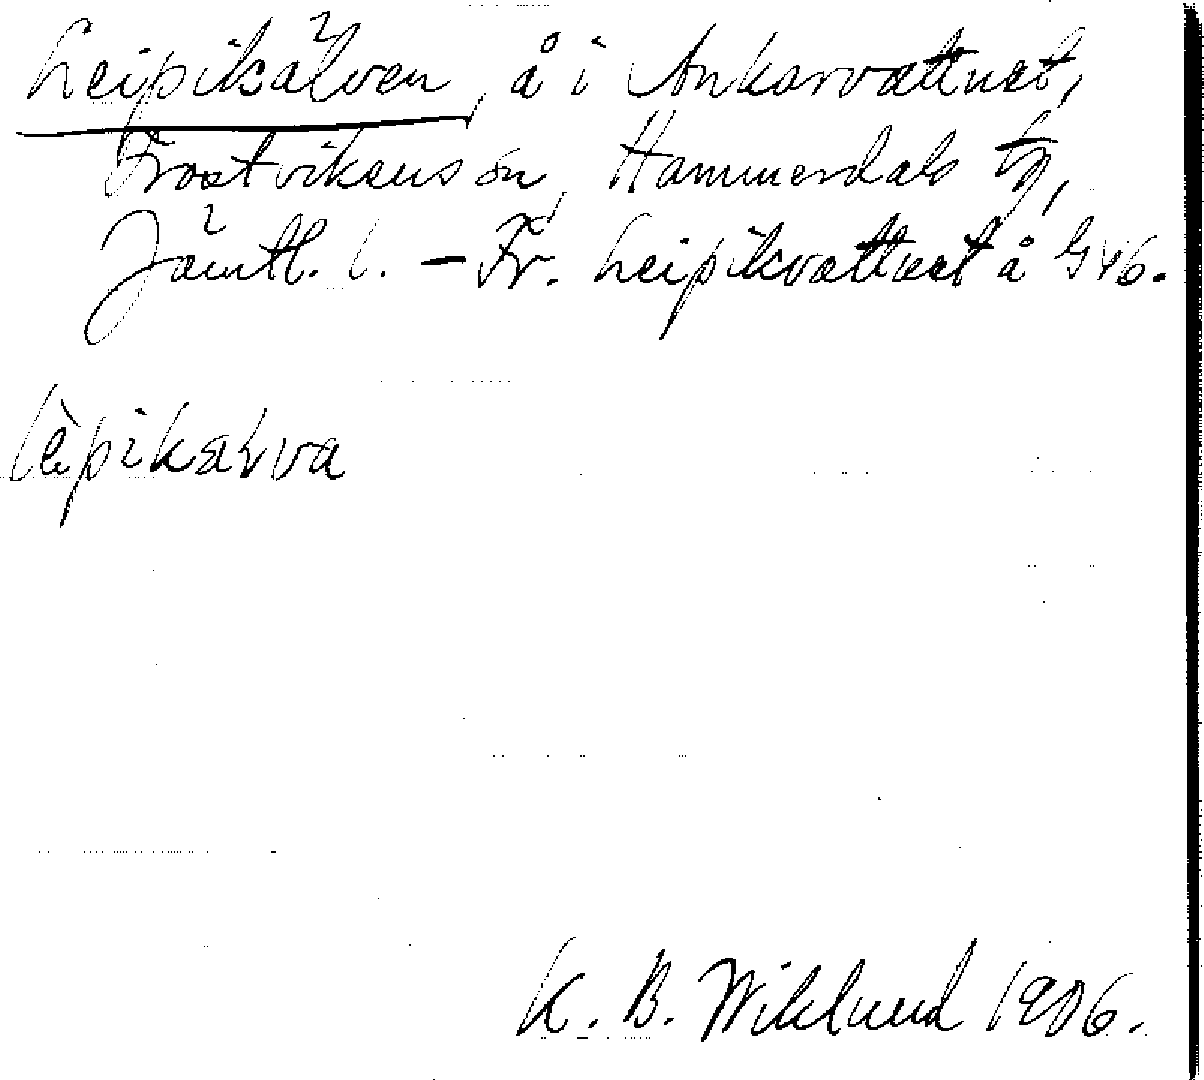 Leipikälven, å i Ankarvattnet,
Frostvikens sn, Hammerdals tg,
Jämtl. l. – Fr. Leipikvattnet å GV6.
lèpikærva
K. B. Wiklund 1906.